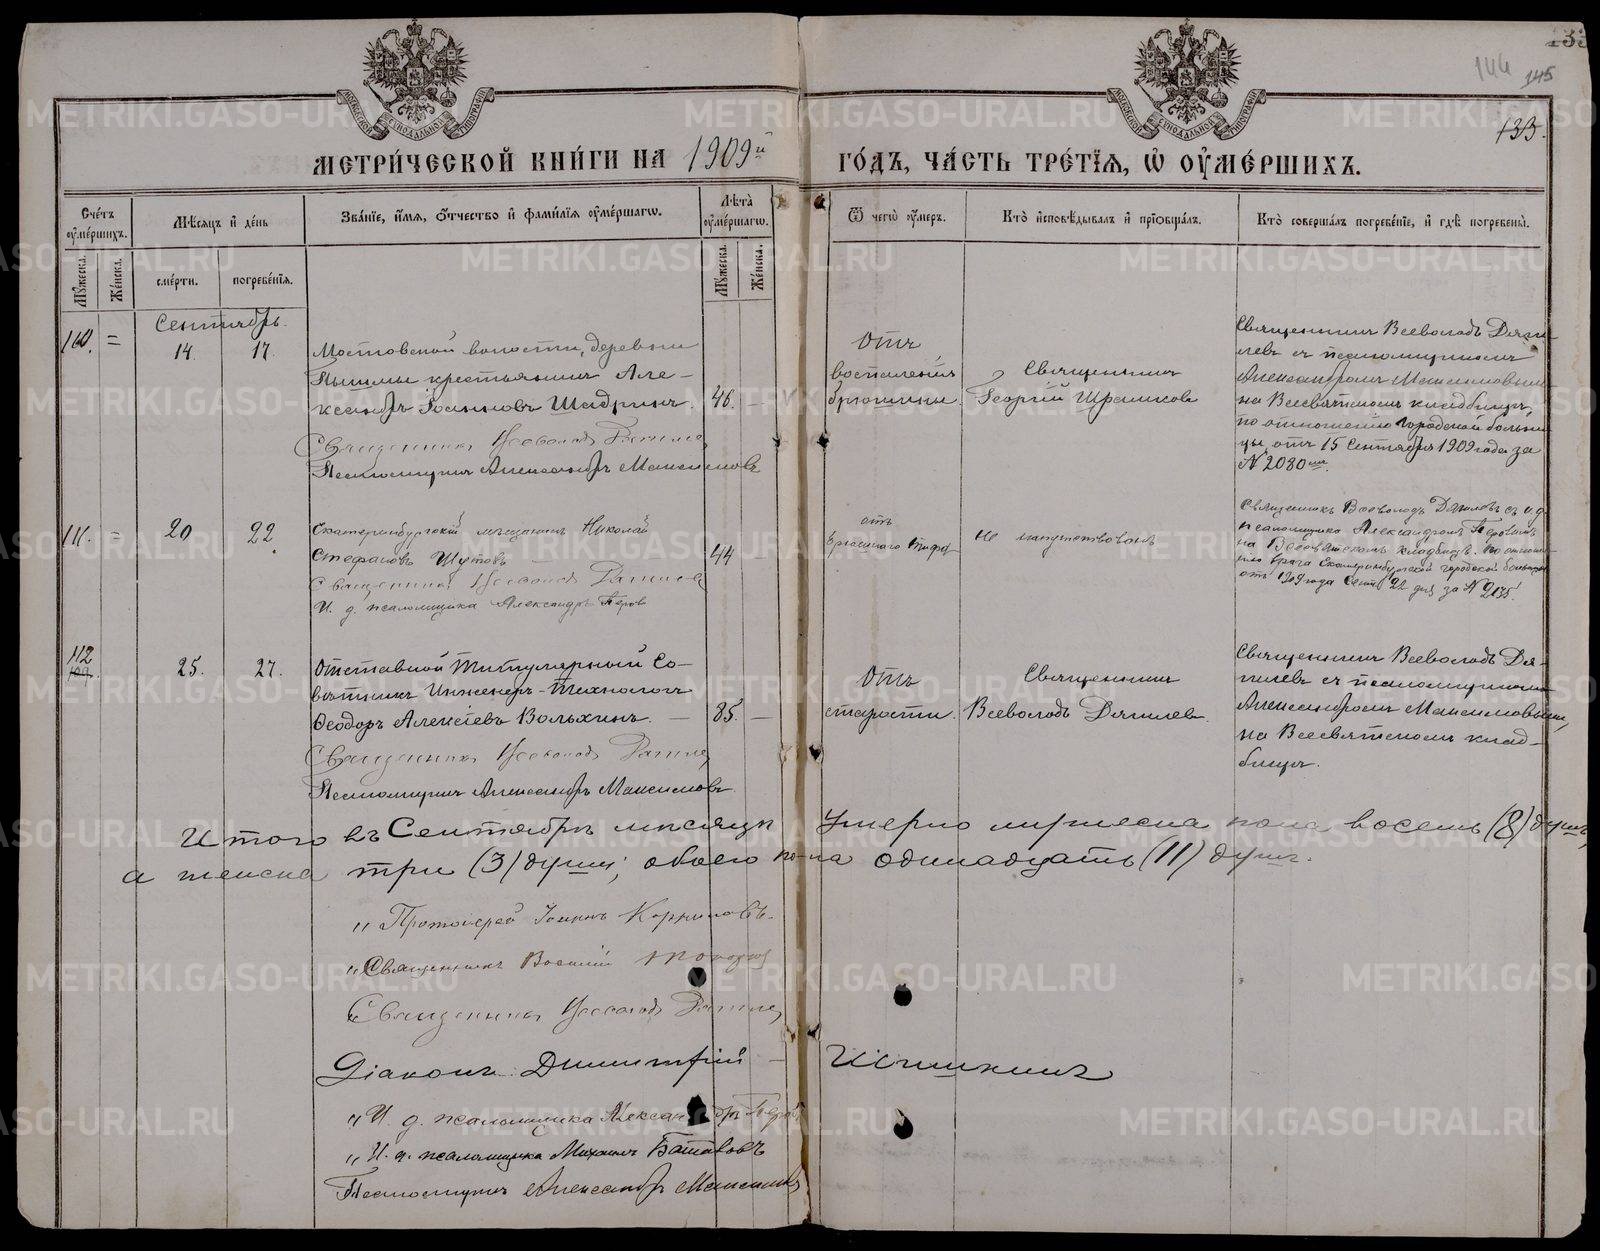 133
144 145
133.
МЕТРИ́ЧЕСКОЙ КНИ́ГИ НА 1909й ГО́ДЪ, ЧА́СТЬ ТРЕ́ТЇѦ, Ѡ҆ ОУ҆МЕ́РШИХЪ.
Сче́тъ оу҆ме́ршихъ.
Мꙋ́жеска.
Же́нска.
Мѣ́сѧцъ и҆ де́нь
сме́рти.
погребе́нїѧ.
Зва́нїе, и҆́мѧ, ѻ҆́тчество и҆ фами́лїѧ оу҆ме́ршагѡ.
Лѣ̀та̀ оу҆ме́ршагѡ.
Мꙋ́жеска.
Же́нска.
Ѿ чегѡ̀ оу҆́меръ.
Кто̀ и҆сповѣ́дывалъ и҆ прїѡбща́лъ.
Кто̀ соверша́лъ погребе́нїе, и҆ гдѣ̀ погребены̀.
Сентябрь.
110. = 14. 17.
Мостовской волости, деревни
Пышмы крестьянинъ Але-
ксандръ Іоанновъ Шадринъ. 46. –
Священникъ Всеволодъ Дягилев
Псаломщикъ Александръ Максимовъ
Отъ
воспаленія
брюшины.
Священникъ
Георгій Ирашиков
Священникъ Всеволодъ Дяги-
левъ съ псаломщикомъ
Александромъ Максимовымъ
на Всесвятскомъ кладбищѣ,
по отношенію городской больни-
цы отъ 15 Сентября 1909 года за
№ 2080мъ.
111. = 20 22
Екатеринбургскій мѣщанинъ Николай
Стефановъ Шутовъ 44
Священникъ Всеволодъ Дягилев
И. д. псаломщика Александръ Перов
отъ
брюшного тифа
не напутствованъ
Священникъ Всеволодъ Дягилевъ съ и. д.
псаломщика Александромъ Перовымъ
на Всесвятскомъ кладбищѣ. По отноше-
нію врача Екатеринбургской городской больницы
отъ 1909 года Сент. 22 дня за № 2135.
112
109. 25. 27.
Отставной Титулярный Со-
вѣтникъ Инженеръ-Технологъ
Ѳеодоръ Алексіевъ Вольхинъ. – 85. –
Священникъ Всеволодъ Дягилев
Псаломщикъ Александръ Максимовъ.
Отъ
старости.
Священникъ
Всеволодъ Дягилев.
Священникъ Всеволодъ Дя-
гилевъ съ псаломщикомъ
Александромъ Максимовымъ,
на Всесвятскомъ клад-
бищѣ.
Итого въ Сентябрѣ мѣсяцѣ умерло мужеска пола восемь (8) душъ,
а женска три (3) души; обоего пола одинадцать (11) душъ.
„ Протоіерей Іоаннъ Корниловъ.
„ Священникъ Василій
„ Священникъ Всеволодъ Дягилев
Діаконъ Димитрій – Шишкинъ
„ И. д. псаломщика Александръ Перов
„ И. д. псаломщика Михаилъ Баталовъ
Псаломщикъ Александръ Максимовъ